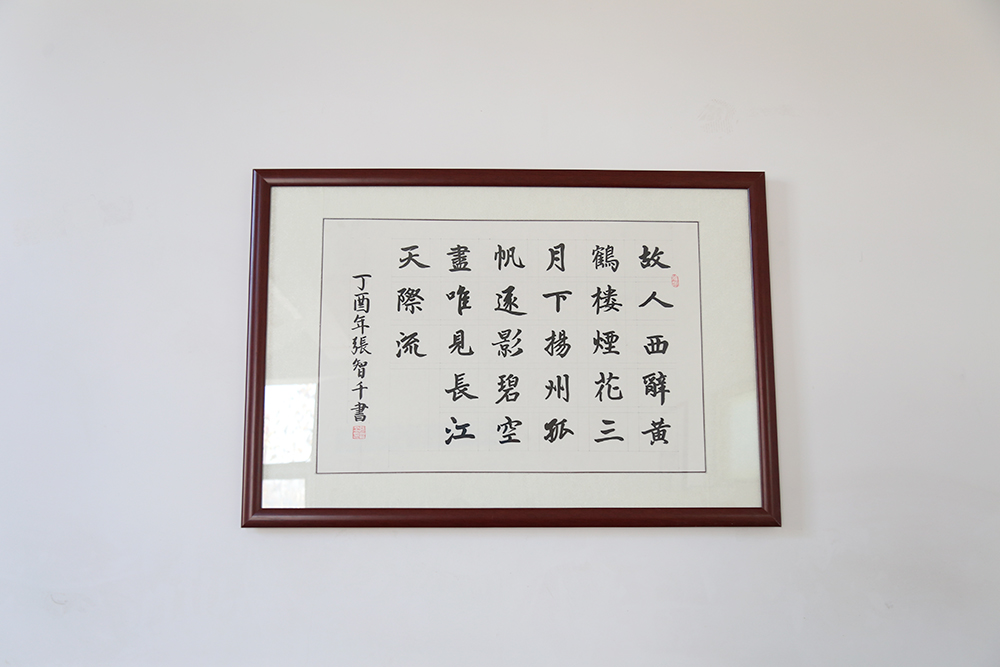 故人西辭黃
鶴樓煙花三
月下揚州孤
帆逐影碧空
盡唯見長江
天際流
丁酉年張智千書